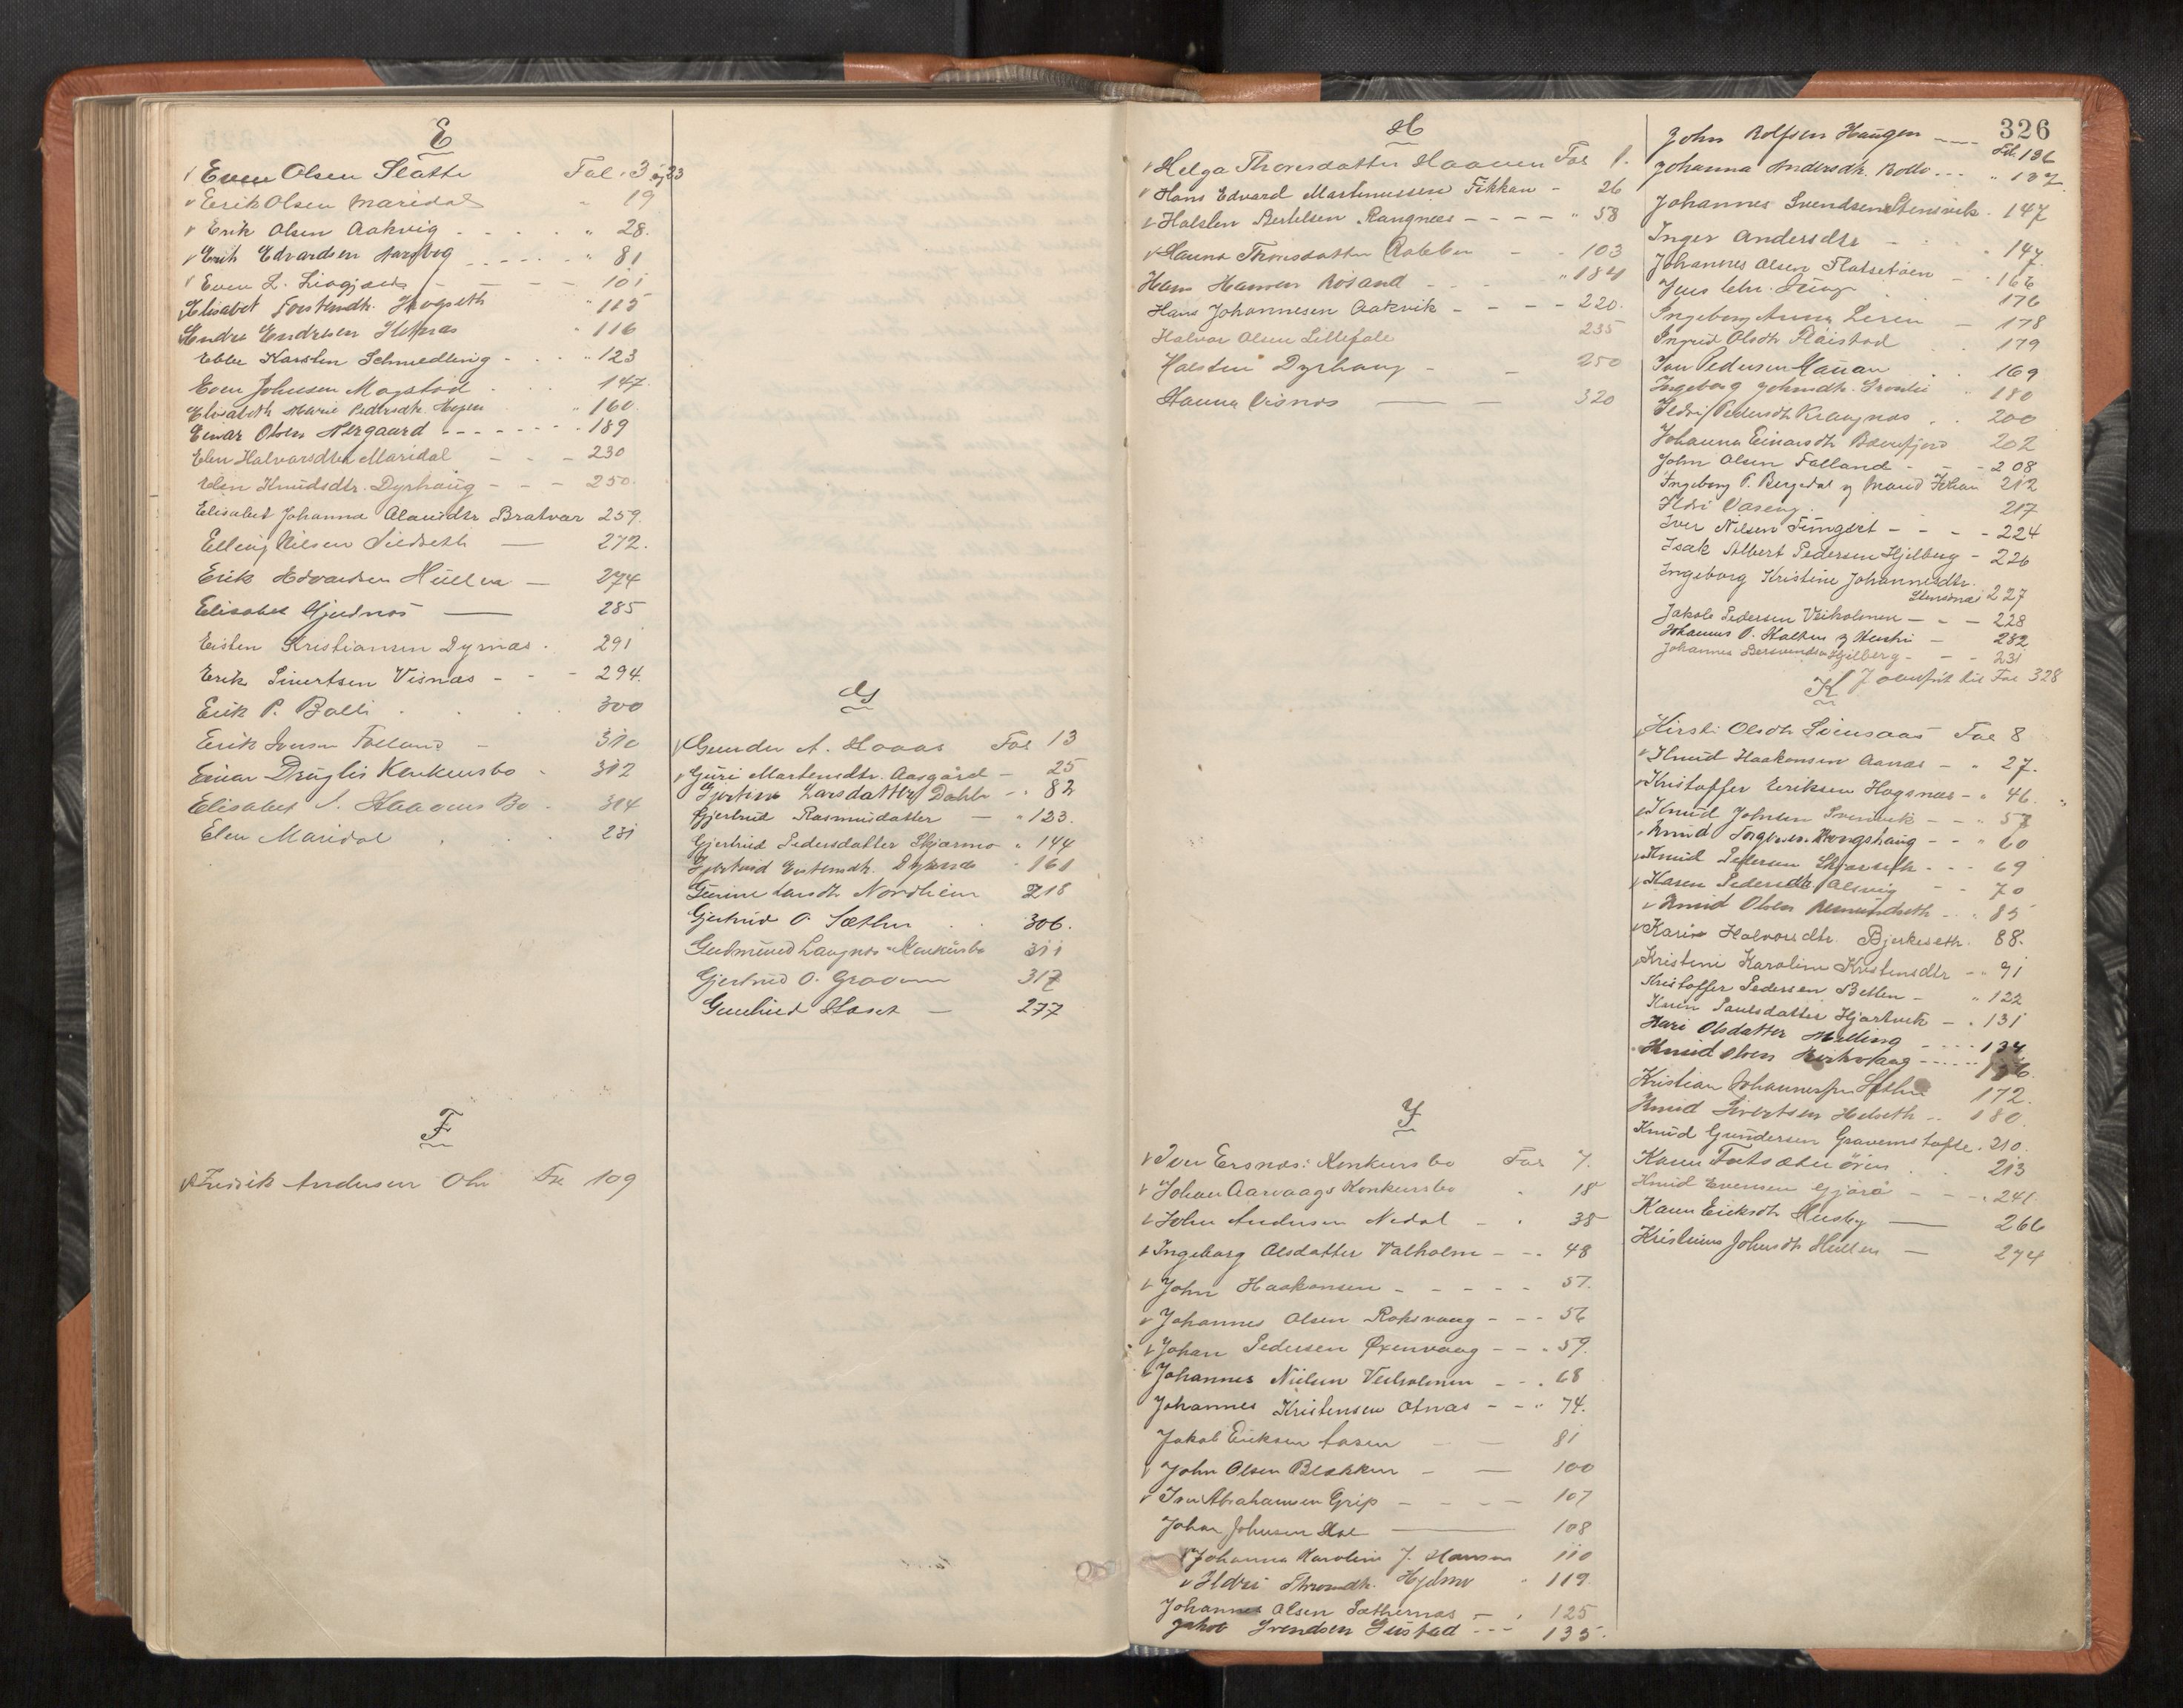 E
Even Olsen Slatte Fol. 3 og 23
Erik Olsen Maridal " 19
Erik Olsen Aakvig " 28.
Erik Edvardsen " 81
Even L. 101
Elisabet Torstendtr. 115
Endre Endresen " 116
Ebbe Karsten Schmedling " 123
Even Johnsen Magstad 147.
Elisabeth Marie Pedersdtr. Mogen " 160.
Einar Olsen Nergaard " 189
Elen Halvorsdtr Maridal 230
Elen Knudsdtr. Dyrhaug 250.
Elisabet Johanna Olausdtr Bratvær 259.
Elling Nilsen Sildseth 272.
Erik Edvardsen Hullen 274
Elisabet Gjednæs 285
Eisten Kristiansen Dyrnæs 291
Erik Sivertsen Visnæs 294.
Erik P. Bolli 300
Erik Iversen Folland 310
Einar Drugli's Konkursbo 312
Elisabet Bo 314
Elen Maridal 231
F
Fredrik Andersen Ohr Fol 109
G
Gunder A. Haaas Fol 13
Guri Martensdtr. Aasgård 25
Gjertine Larsdatter Dahle 82
Gjertrud Rasmusdatter " 123.
Gjertrud Pedersdatter Skjærmo " 144
Gjertrud 161
Gurine Larsdtr Nordheim 218
Gjertrud O. Sæther 306.
Gudmund Langnes Konkursbo 311
Gjertrud O. Graven 317
Gunhild Haset 277
H
Helga Thoresdatter Haaven Fol 1.
Hans Edvard Martinussen Fikkan 26
Halsten Bertelsen Rangnes " 58
Hanna Thoresdatter 103
Hans Hansen Rosand " 184
Hans Johannesen Aakvik 220.
Halvor Olsen Lillefale 235
Halsten Dyrhaug 250
Hanna Visnes 320
I
Iver Ersnæs: Konkursbo Fol 7.
Johan Aarvaags Konkursbo " 18
John Andersen Nedal 38
Ingeborg Olsdatter Valholm 48
John Haakonsen 57.
Johannes Olsen Roksvaag 56
Johan Pedersen Øxenvaag 59.
Johannes Nilsen Veiholmen 68
Johannes Kristensen Otnæs 74.
Jakob Eriksen Aasen 81
John Olsen Blekken 100
Iver Abrahamsen Grip 107
Johan Johnsen Hol 108
Johanna Karoline J. Hansen 110
Ildri Hjelmo 119
Johannes Olsen Sæthernæs 125
Jakob Svendsen Gustad 135.
326
John Rolfsen Haugen Fol. 136
Johanna Andersdtr. Bolle " 137
Johannes Svendsen Stensvik 147
Inger Andersdtr 147.
Johannes Olsen Flatsetøen 166
Jens Chr. 176
Ingeborg Anna Leren 178
Ingrid Olsdtr 179
Iver Pedersen 169
Ingeborg Johnsdtr. 180
Ildri Pedersdtr Kraagnæs 200
Johanna Einarsdtr Bæverfjord 202
John Olsen Folland 208
Ingeborg P. Bergedal og Mand Johan 212
Ildri Vaseng 217
Iver Nilsen 224
Isak Albert Pedersen Hjelberg 226
Ingeborg Kristine Johannesdtr.
Stensnæs 227
Jakob Pedersen Veiholmen 228
Johannes O. og Hustru 232
Johannes Hjelberg 231
J overført til Fol 328
K
Kirsti Olsdtr Svinsaas Fol 8
Knud Haakonsen Aanæs " 27.
Kristoffer Eriksen Hagsnæs " 46.
Knud Johnsen Svenvik 57
Knud 60
Knud Pedersen 69
Karen Pedersdtr Alsvig 70
Knud Olsen 85
Karin Halvorsdtr. Bjerkeseth. 88.
Kristine Karoline Kristensdtr 91
Kristoffer Pedersen Betten " 122
Karen Paulsdatter Hjortvik 131
Kari Olsdatter Melling 134
Knud Olsen
Kristian Johannessen 172.
Knud Sivertsen Helseth 180.
Knud Gundersen 210.
Karen 213
Knud Evensen Gjøra 241.
Karen Eriksdtr Husby 266
Kristine Johnsdtr Hullen 274